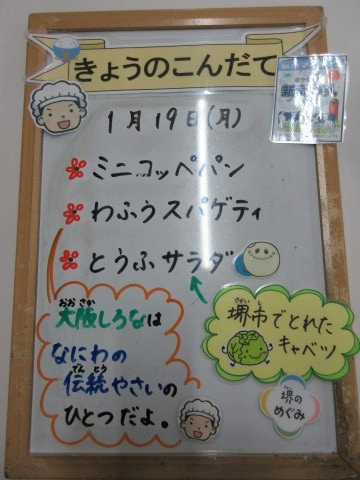 きょうのこんだて
1月19日(月)
ミニコッペパン
わふうスパゲティ
とうふサラダ
おおさか
大阪しろなは
なにわの
でんとう
伝統やさいの
ひとつだよ。
さかいし
堺市でとれた
キャベツ
堺の
めぐみ